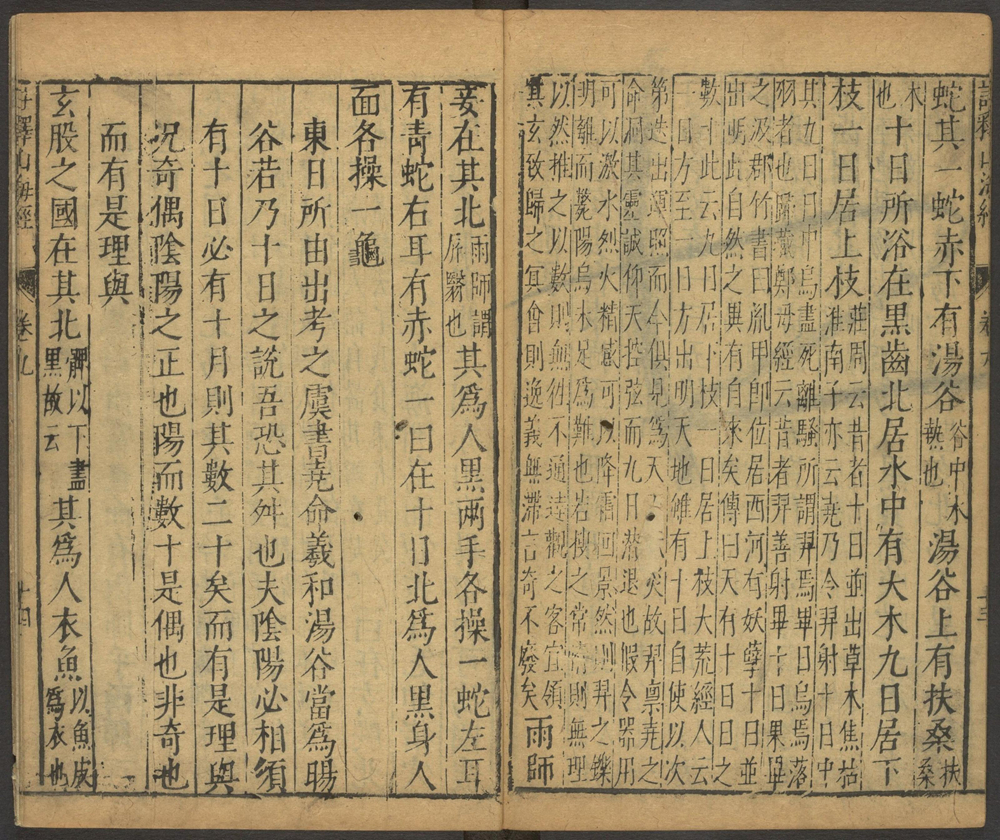 註釋山海經
蛇其一蛇赤下有湯谷谷中水熱也湯谷上有扶桑扶桑
木也十日所浴在黑齒北居水中有大木九日居下
枝一日居上枝莊周云昔者十日並出草木焦枯淮南子亦云堯乃令羿射十日中
其九日日中烏盡死離騷所謂羿焉畢日烏焉落
羽者也歸藏鄭母經云昔者羿善射畢十日果畢
之汲郡竹書曰胤甲卽位居西河有妖孽十日並
出明此自然之異有自來矣傳曰天有十日日之
數十此云九日居下枝一日居上枝大荒經人云
一日方至一日方出明天地雖有十日自使以次
第迭出運照而今俱見爲天災故羿稟堯之
命洞其靈誠仰天控弦而九日潛退也假令器用
可以激水烈火精感可以降霜回景然則羿之鑠
明離而斃陽烏未足爲難也若搜之常情則無理
以然推之以數則無徃不通達觀之客宜領
其玄致歸之冥會則逸義無滯言奇不廢矣雨師
妾在其北雨師謂屏翳也其爲人黑兩手各操一蛇左耳
有青蛇右耳有赤蛇一曰在十日北爲人黑身人
面各操一龜
東日所由出考之虞書堯命羲和湯谷當爲暘
谷若乃十日之說吾恐其舛也夫陰陽必相須
有十日必有十月則其數二十矣而有是理與
況奇偶陰陽之正也陽而數十是偶也非奇也
而有是理與
玄股之國在其北髀以下盡黑故云其爲人衣魚以魚皮爲衣也
註釋山海經 卷九 十四